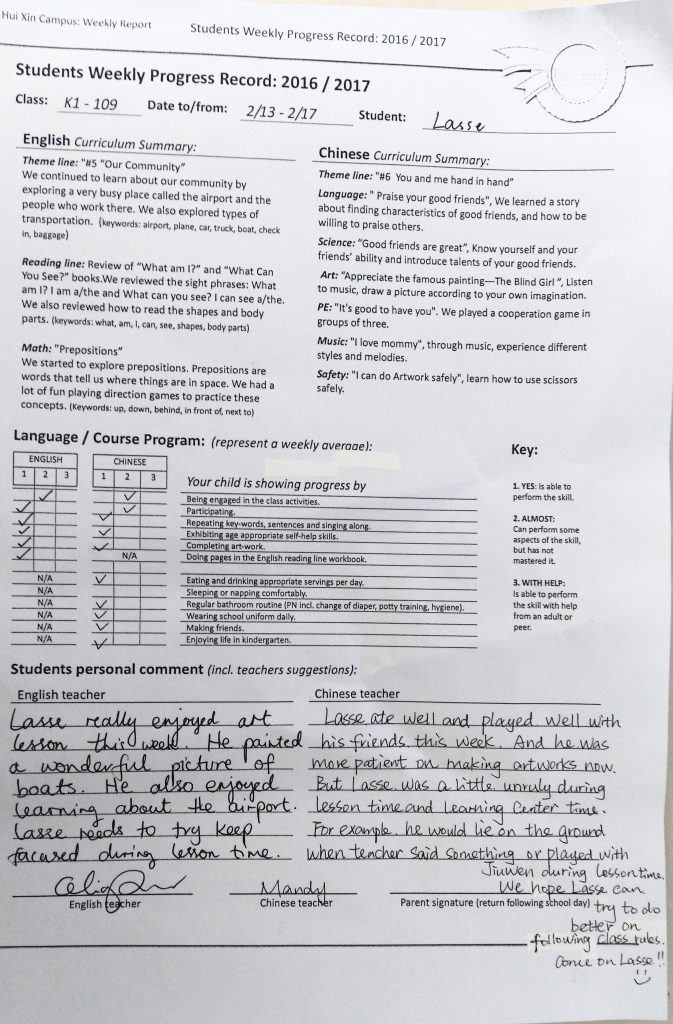 Hui Xin Campus: Weekly Report
Students Weekly Progress Record: 2016 / 2017
Students Weekly Progress Record: 2016 / 2017
Class: K1 - 109 Date to/from: 2/13 - 2/17 Student: Lasse
English Curriculum Summary:
Theme line: "#5 "Our Community"
We continued to learn about our community by
exploring a very busy place called the airport and the
people who work there. We also explored types of
transportation. (keywords: airport, plane, car, truck, boat, check
in, baggage)
Reading line: Review of "What am I?" and "What Can
You See?" books.We reviewed the sight phrases: What
am I? I am a/the and What can you see? I can see a/the.
We also reviewed how to read the shapes and body
parts. (keywords: what, am, I, can, see, shapes, body parts)
Math: "Prepositions"
We started to explore prepositions. Prepositions are
words that tell us where things are in space. We had a
lot of fun playing direction games to practice these
concepts. (Keywords: up, down, behind, in front of, next to)
Chinese Curriculum Summary:
Theme line: "#6 You and me hand in hand"
Language: " Praise your good friends", We learned a story
about finding characteristics of good friends, and how to be
willing to praise others.
Science: "Good friends are great", Know yourself and your
friends' ability and introduce talents of your good friends.
Art: "Appreciate the famous painting---The Blind Girl ", Listen
to music, draw a picture according to your own imagination.
PE: "It's good to have you". We played a cooperation game in
groups of three.
Music: "I love mommy", through music, experience different
styles and melodies.
Safety: "I can do Artwork safely", learn how to use scissors
safely.
Language / Course Program: (represent a weekly average):
ENGLISH CHINESE
1 2 3 1 2 3 Your child is showing progress by
✓ ✓ Being engaged in the class activities.
✓ ✓ Participating.
✓ ✓ Repeating key-words, sentences and singing along.
✓ ✓ Exhibiting age appropriate self-help skills.
✓ ✓ Completing art-work.
✓ N/A Doing pages in the English reading line workbook.
N/A ✓ Eating and drinking appropriate servings per day.
N/A Sleeping or napping comfortably.
N/A ✓ Regular bathroom routine (PN incl. change of diaper, potty training, hygiene).
N/A ✓ Wearing school uniform daily.
N/A ✓ Making friends.
N/A ✓ Enjoying life in kindergarten.
Key:
1. YES: Is able to
perform the skill.
2. ALMOST:
Can perform some
aspects of the skill,
but has not
mastered it.
3. WITH HELP:
Is able to perform
the skill with help
from an adult or
peer.
Students personal comment (incl. teachers suggestions):
English teacher
Lasse really enjoyed art
lesson this week. He painted
a wonderful picture of
boats. He also enjoyed
learning about the airport.
Lasse needs to try keep
facused during lesson time.
English teacher
Chinese teacher
Lasse ate well and played well with
his friends this week. And he was
more patient on making artworks now.
But Lasse was a little unruly during
lesson time and Learning Center time.
For example. he would lie on the ground
when teacher said something or played with
Jiuwen during lesson time.
We hope Lasse can
try to do
better on
following class rules.
Come on Lasse!!
Mandy
Chinese teacher
Parent signature (return following school day)